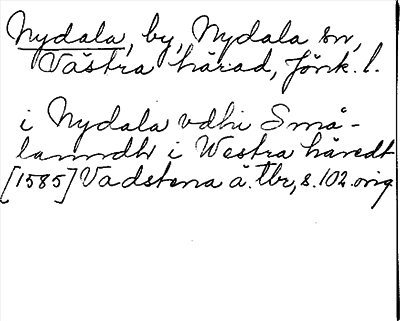 Nydala, by, Nydala sn,
Västra härad, Jönk. l.
i Nydala vdhi Små-
lanndh i Westra häredt
[1585] Vadstena ä. tbr, s. 102. orig